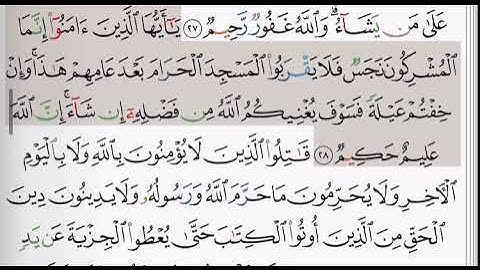 عَلَىٰ مَن يَشَآءُ ۗ وَٱللَّهُ غَفُورٌ رَّحِيمٌ ٢٧ يَـٰٓأَيُّهَا ٱلَّذِينَ ءَامَنُوٓا۟ إِنَّمَا
ٱلْمُشْرِكُونَ نَجَسٌ فَلَا يَقْرَبُوا۟ ٱلْمَسْجِدَ ٱلْحَرَامَ بَعْدَ عَامِهِمْ هَـٰذَا ۚ وَإِنْ
خِفْتُمْ عَيْلَةً فَسَوْفَ يُغْنِيكُمُ ٱللَّهُ مِن فَضْلِهِۦٓ إِن شَآءَ ۚ إِنَّ ٱللَّهَ
عَلِيمٌ حَكِيمٌ ٢٨ قَـٰتِلُوا۟ ٱلَّذِينَ لَا يُؤْمِنُونَ بِٱللَّهِ وَلَا بِٱلْيَوْمِ
ٱلْـَٔاخِرِ وَلَا يُحَرِّمُونَ مَا حَرَّمَ ٱللَّهُ وَرَسُولُهُۥ وَلَا يَدِينُونَ دِينَ
ٱلْحَقِّ مِنَ ٱلَّذِينَ أُوتُوا۟ ٱلْكِتَـٰبَ حَتَّىٰ يُعْطُوا۟ ٱلْجِزْيَةَ عَن يَدٍ